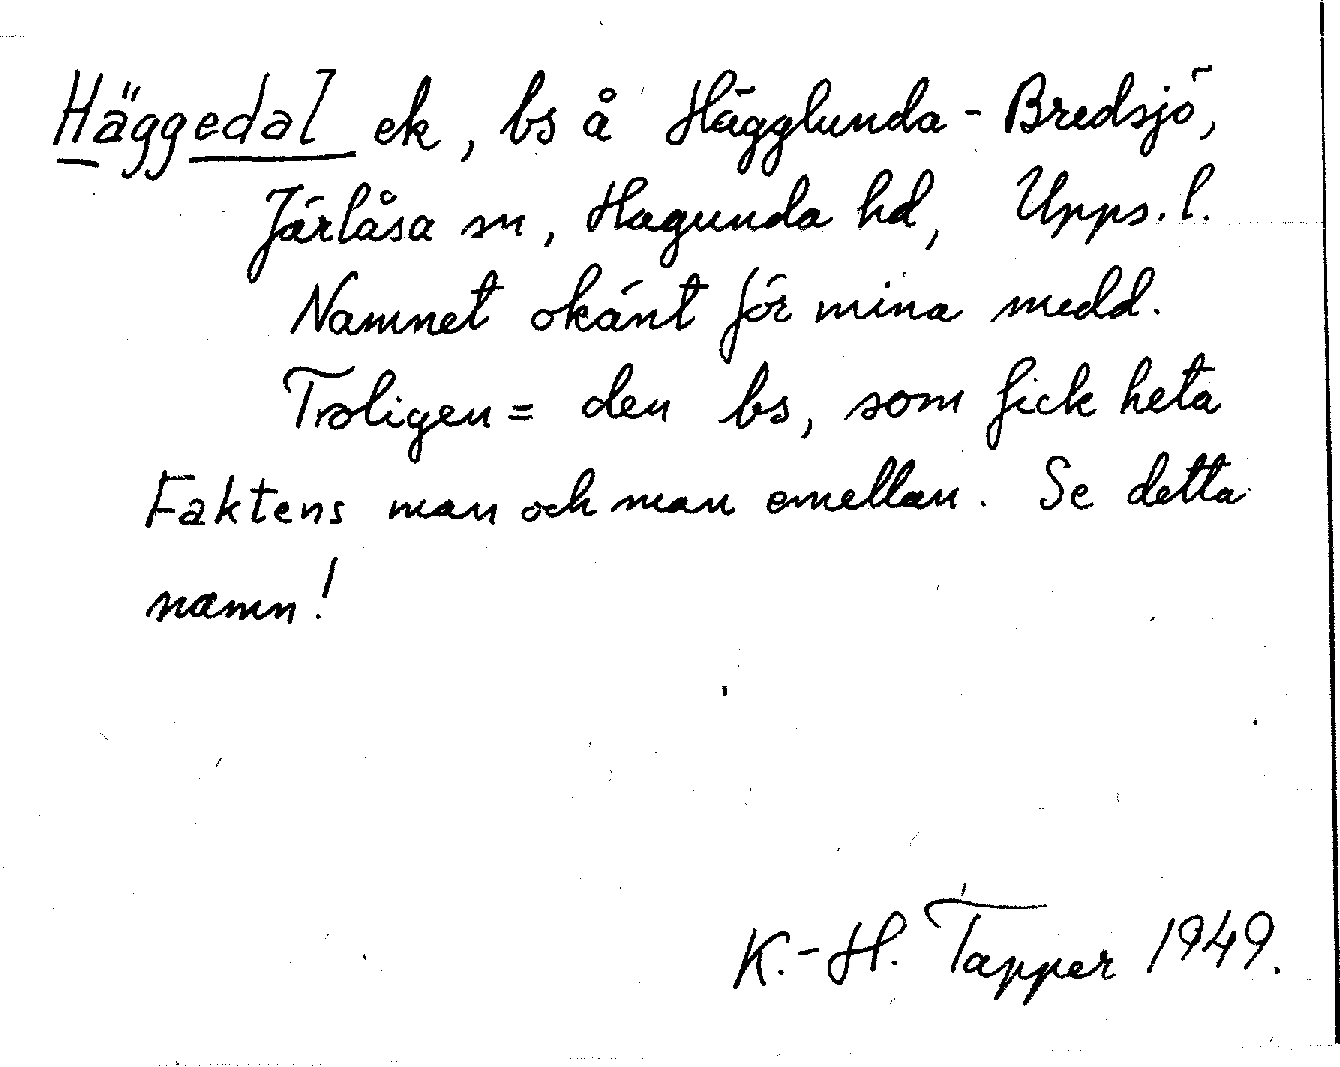 Häggedal ek, bs å Hägglunda - Bredsjö,
Järlåsa sn, Hagunda hd, Upps. l.
Namnet okänt för mina medd.
Troligen = den bs, som fick heta
Faktens man och man emellan. Se detta
namn!
K.-H. Tapper 1949.